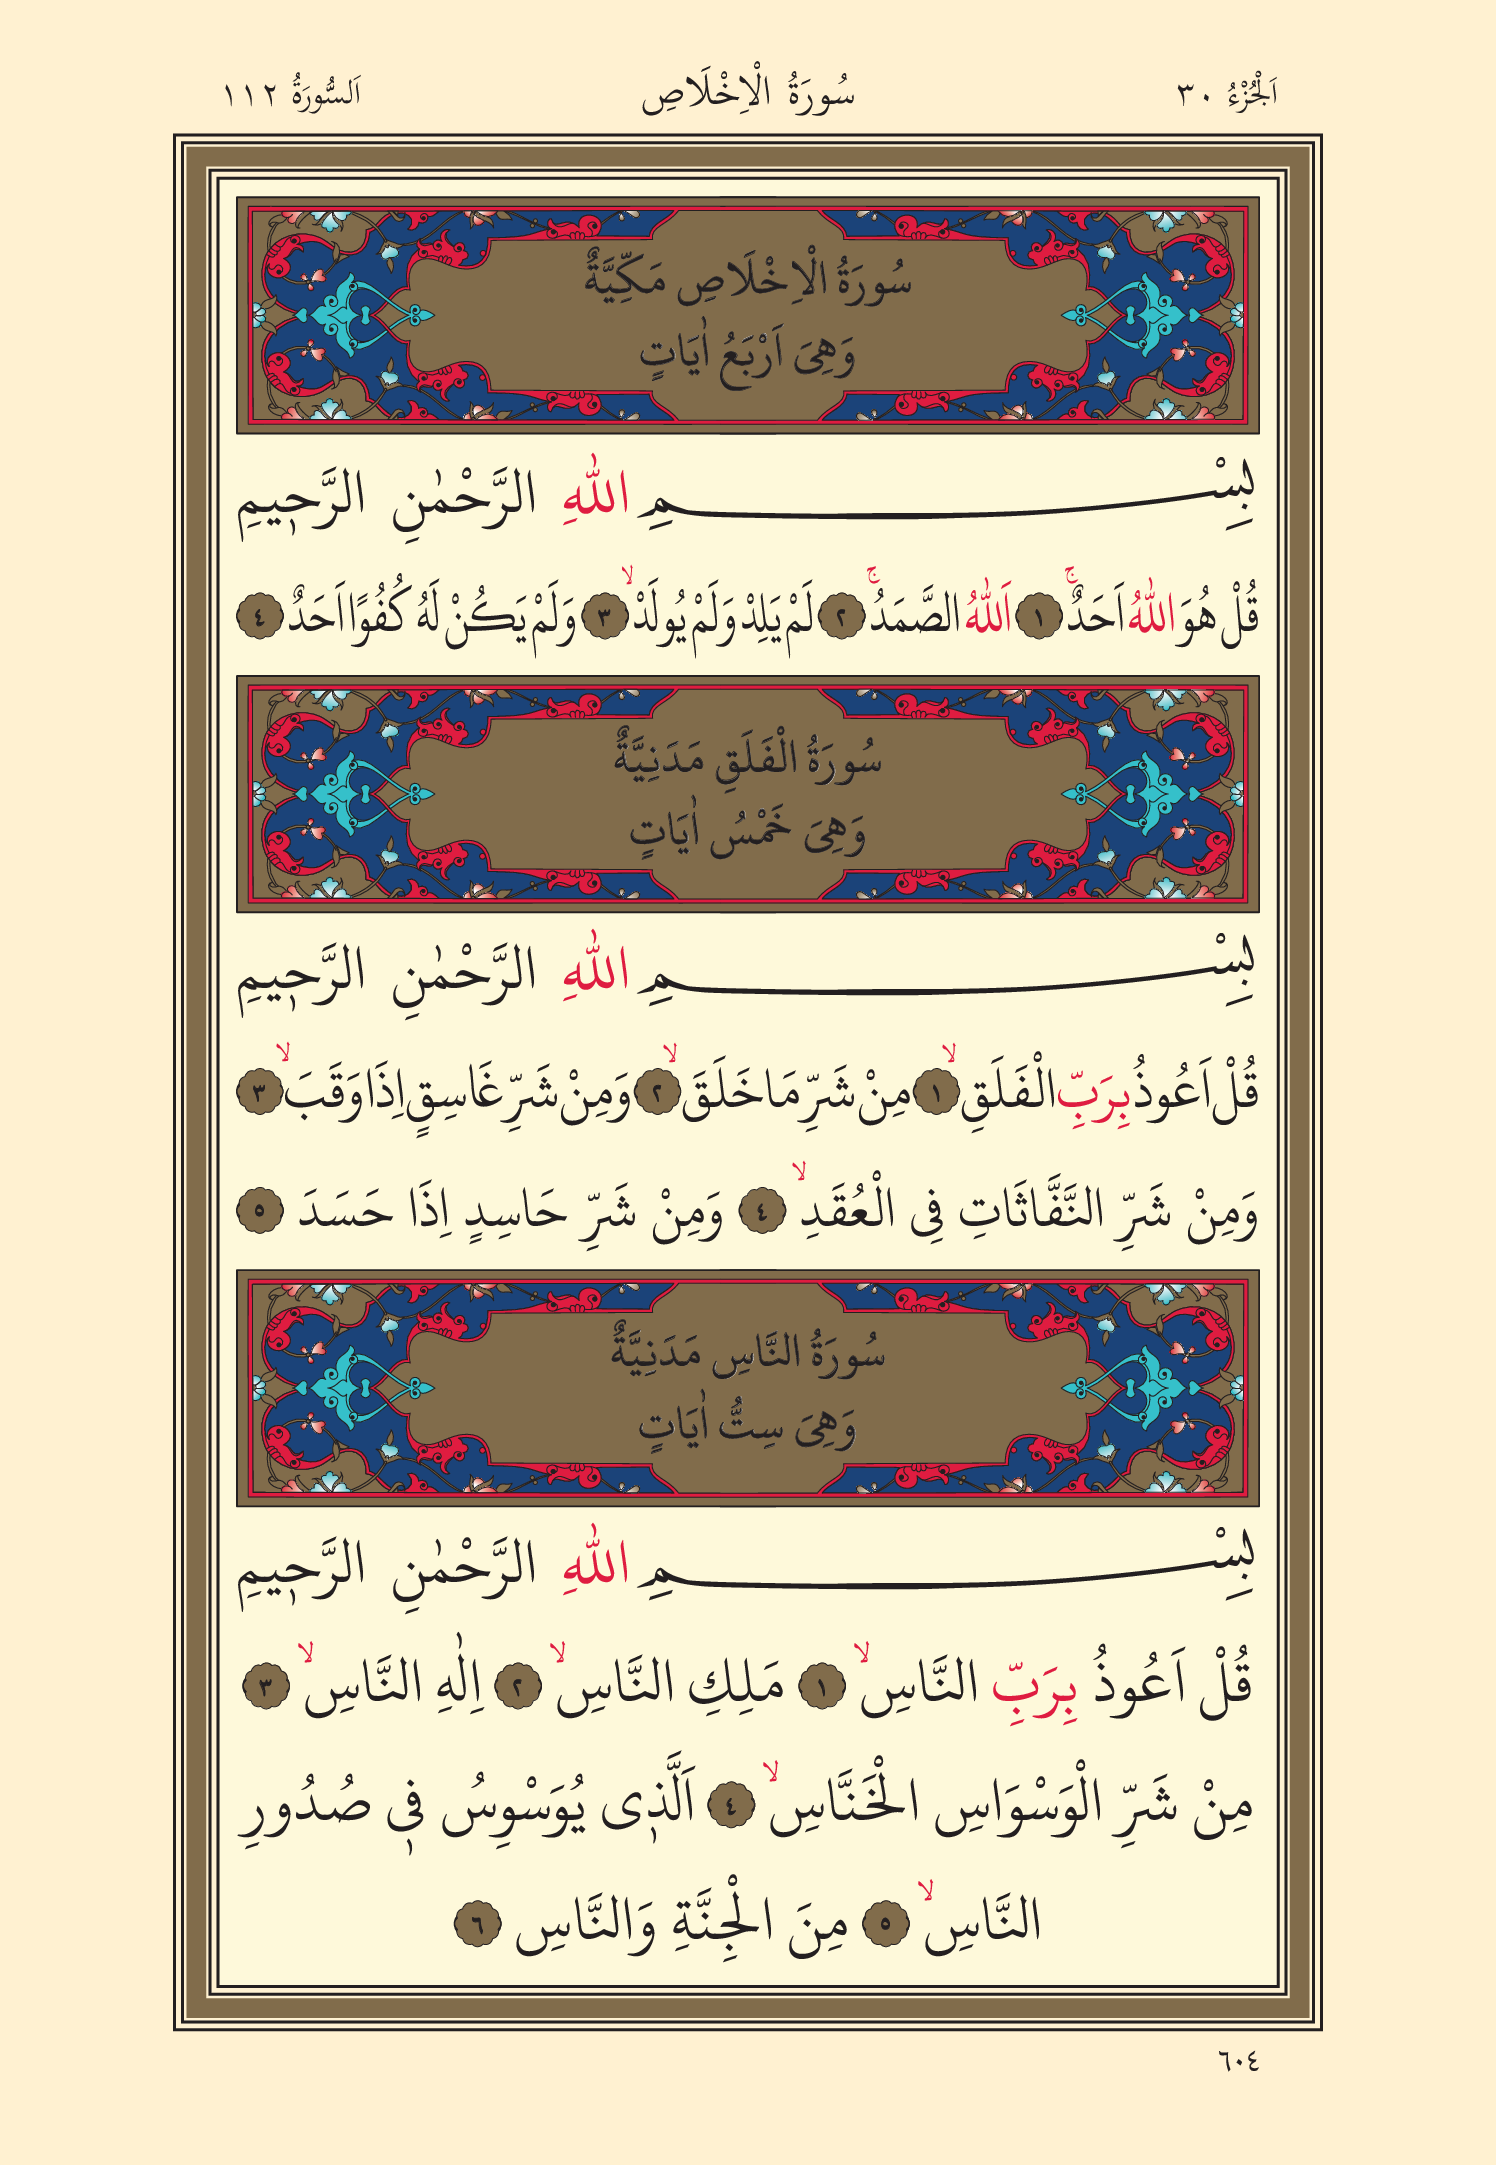 اَلْجُزْءُ ٣٠ سُورَةُ الْاِخْلَاصِ اَلسُّورَةُ ١١٢
سُورَةُ الْاِخْلَاصِ مَكِّيَّةٌ
وَهِىَ اَرْبَعُ اٰيَاتٍ
بِسْــــــــمِ اللّٰهِ الرَّحْمٰنِ الرَّحٖيمِ
قُلْ هُوَ اللّٰهُ اَحَدٌۚ ١ اَللّٰهُ الصَّمَدُۚ ٢ لَمْ يَلِدْ وَلَمْ يُولَدْۙ ٣ وَلَمْ يَكُنْ لَهُ كُفُوًا اَحَدٌ ٤
سُورَةُ الْفَلَقِ مَدَنِيَّةٌ
وَهِىَ خَمْسُ اٰيَاتٍ
بِسْــــــــمِ اللّٰهِ الرَّحْمٰنِ الرَّحٖيمِ
قُلْ اَعُوذُ بِرَبِّ الْفَلَقِۙ ١ مِنْ شَرِّ مَا خَلَقَۙ ٢ وَمِنْ شَرِّ غَاسِقٍ اِذَا وَقَبَۙ ٣
وَمِنْ شَرِّ النَّفَّاثَاتِ فِى الْعُقَدِۙ ٤ وَمِنْ شَرِّ حَاسِدٍ اِذَا حَسَدَ ٥
سُورَةُ النَّاسِ مَدَنِيَّةٌ
وَهِىَ سِتُّ اٰيَاتٍ
بِسْــــــــمِ اللّٰهِ الرَّحْمٰنِ الرَّحٖيمِ
قُلْ اَعُوذُ بِرَبِّ النَّاسِۙ ١ مَلِكِ النَّاسِۙ ٢ اِلٰهِ النَّاسِۙ ٣
مِنْ شَرِّ الْوَسْوَاسِ الْخَنَّاسِۙ ٤ اَلَّذٖى يُوَسْوِسُ فٖى صُدُورِ
النَّاسِۙ ٥ مِنَ الْجِنَّةِ وَالنَّاسِ ٦
٦٠٤